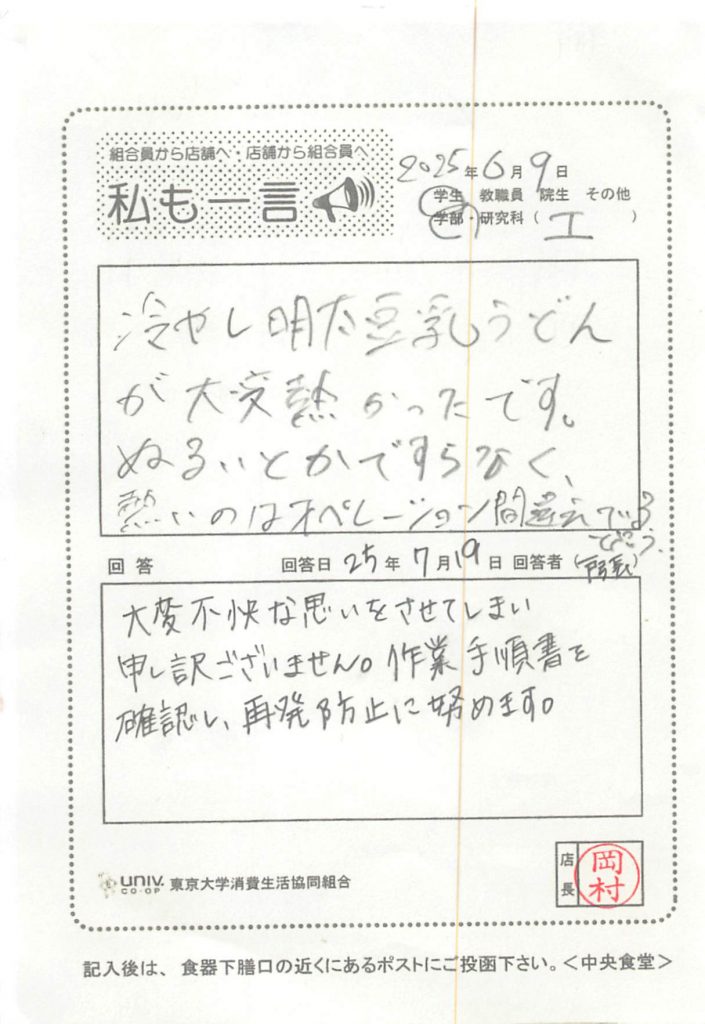 組合員から店舗へ・店舗から組合員へ
私も一言
2025年6月9日
学生 教職員 院生 その他
学部・研究科(工)
冷やし明太豆乳うどん
が大変熱かったです。
ぬるいとかですらなく、
熱いのはオペレーション間違えている
でしょう。
回答 回答日 25年7月19日 回答者
大変不快な思いをさせてしまい
申し訳ございません。作業手順書を
確認し、再発防止に努めます。
UNIV. CO-OP 東京大学消費生活協同組合
店長 岡村
記入後は、食器下膳口の近くにあるポストにご投函下さい。<中央食堂>